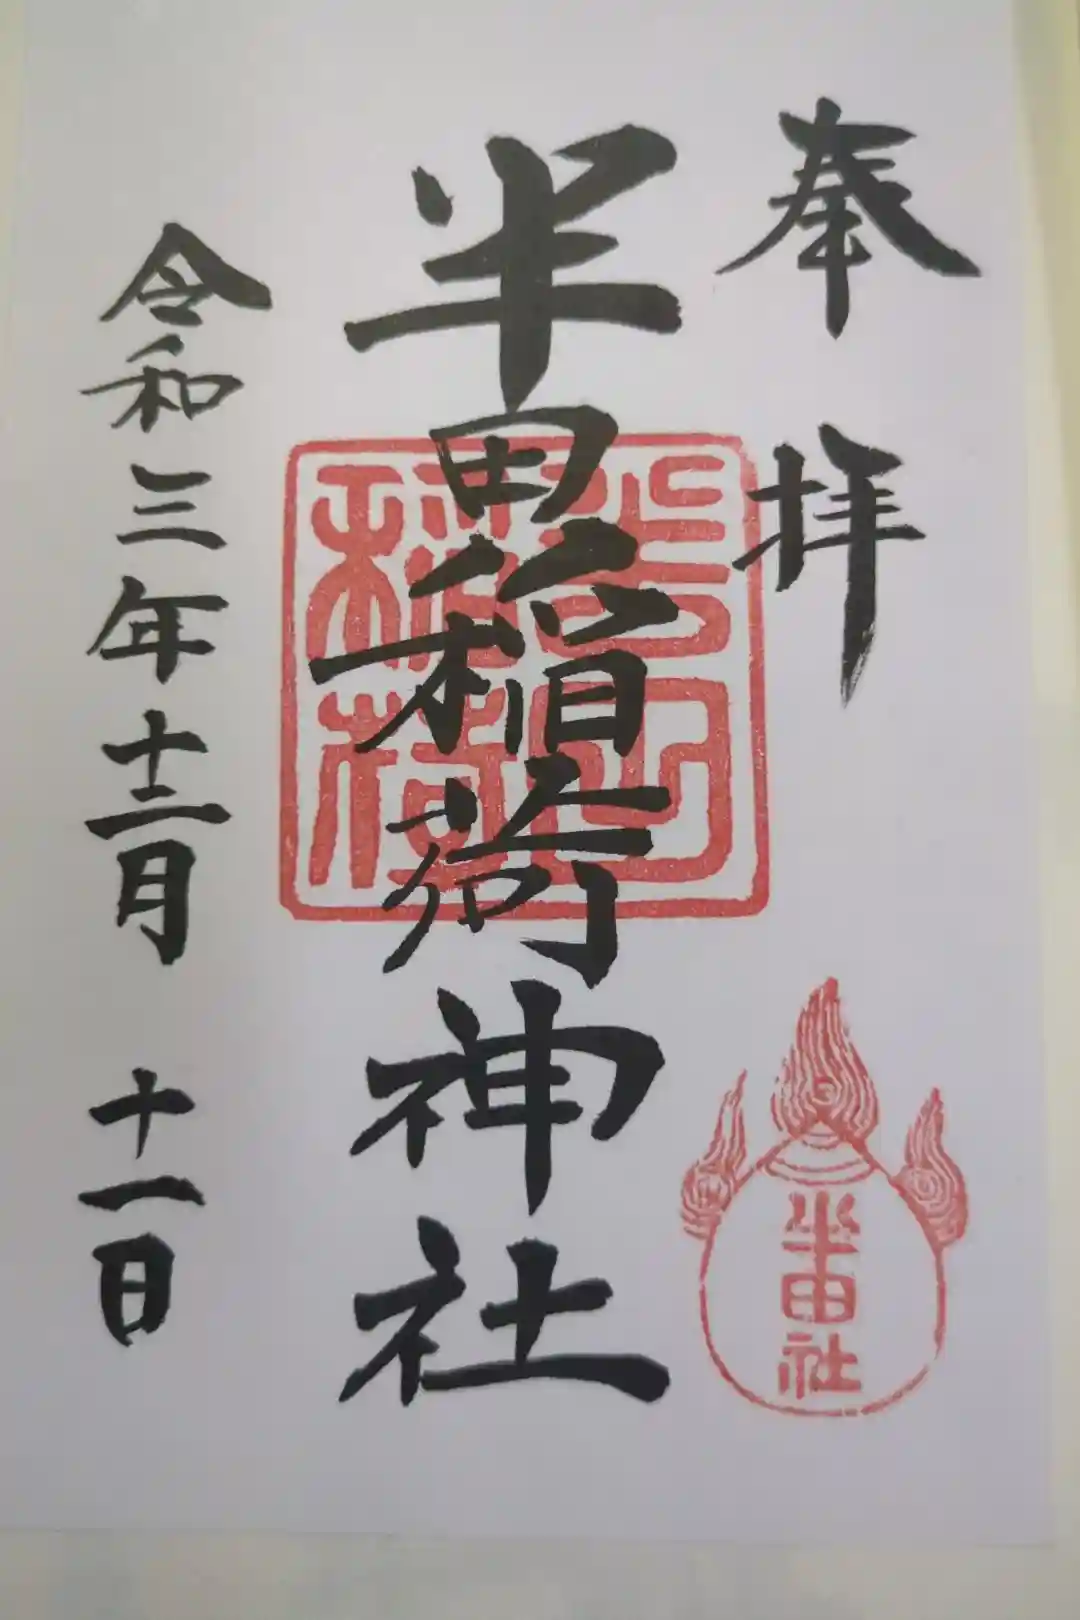 奉拝
半田稲荷神社
令和三年十二月十一日
半田社
稲荷